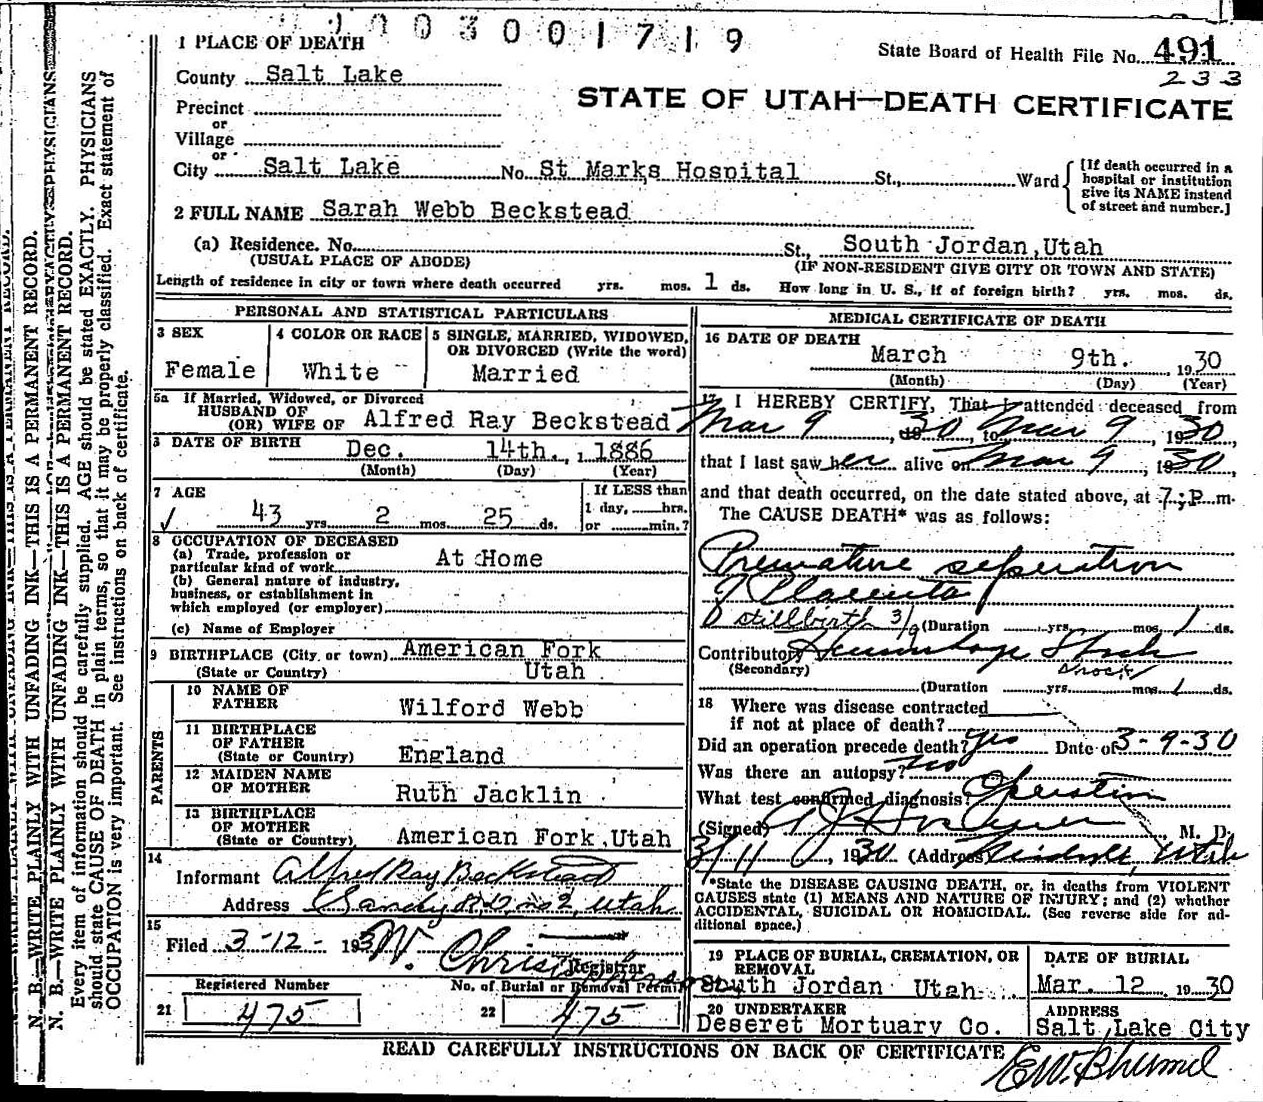 0 0 3 0 0 1 7 1 9
1 PLACE OF DEATH
State Board of Health File No. 491
233
County Salt Lake
STATE OF UTAH—DEATH CERTIFICATE
Precinct
or
Village
or
City Salt Lake No. St Marks Hospital St., Ward
[If death occurred in a hospital or institution give its NAME instead of street and number.]
2 FULL NAME Sarah Webb Beckstead
(a) Residence. No. St., South Jordan, Utah
(USUAL PLACE OF ABODE) (IF NON-RESIDENT GIVE CITY OR TOWN AND STATE)
Length of residence in city or town where death occurred yrs. mos. 1 ds. How long in U. S., if of foreign birth? yrs. mos. ds.
PERSONAL AND STATISTICAL PARTICULARS
3 SEX
Female
4 COLOR OR RACE
White
5 SINGLE, MARRIED, WIDOWED,
OR DIVORCED (Write the word)
Married
5a If Married, Widowed, or Divorced
HUSBAND OF
(OR) WIFE OF Alfred Ray Beckstead
DATE OF BIRTH Dec. 14th., 1886
(Month) (Day) (Year)
7 AGE
43 yrs 2 mos. 25 ds.
If LESS than
1 day, hrs.
or min.?
8 OCCUPATION OF DECEASED
(a) Trade, profession or
particular kind of work At Home
(b) General nature of industry,
business, or establishment in
which employed (or employer)
(c) Name of Employer
9 BIRTHPLACE (City or town) American Fork
(State or Country) Utah
PARENTS
10 NAME OF
FATHER Wilford Webb
11 BIRTHPLACE
OF FATHER
(State or Country) England
12 MAIDEN NAME
OF MOTHER Ruth Jacklin
13 BIRTHPLACE
OF MOTHER
(State or Country) American Fork, Utah
14
Informant Alfred Ray Beckstead
Address Sandy R.D. no 2, Utah
15
Filed 3-12- 193
Registrar
Registered Number
21 475
No. of Burial or Removal Permit
22 475
MEDICAL CERTIFICATE OF DEATH
16 DATE OF DEATH
March 9th. 1930
(Month) (Day) (Year)
17 I HEREBY CERTIFY, That I attended deceased from
Mar 9, 1930, to Mar 9, 1930,
that I last saw her alive on Mar 9, 1930,
and that death occurred, on the date stated above, at 7:P.m.
The CAUSE DEATH* was as follows:
Premature seperation
of Placenta
stillbirth 3/9 (Duration yrs. mos. 1 ds.
Contributory Hemorrhage Shock
(Secondary) shock
(Duration yrs. mos. 1 ds.
18 Where was disease contracted
if not at place of death?
Did an operation precede death? yes Date of 3-9-30
Was there an autopsy? no
What test confirmed diagnosis? Operation
(Signed) M. D.
3/11, 1930 (Address) Midvale, Utah
*State the DISEASE CAUSING DEATH, or, in deaths from VIOLENT
CAUSES state (1) MEANS AND NATURE OF INJURY; and (2) whether
ACCIDENTAL, SUICIDAL OR HOMICIDAL. (See reverse side for additional space.)
19 PLACE OF BURIAL, CREMATION, OR
REMOVAL
South Jordan Utah
DATE OF BURIAL
Mar. 12 1930
20 UNDERTAKER
Deseret Mortuary Co.
ADDRESS
Salt Lake City
READ CAREFULLY INSTRUCTIONS ON BACK OF CERTIFICATE
N. B.—WRITE PLAINLY WITH UNFADING INK—THIS IS A PERMANENT RECORD.
N. B.—WRITE PLAINLY WITH UNFADING INK—THIS IS A PERMANENT RECORD.
Every item of information should be carefully supplied. AGE should be stated EXACTLY. PHYSICIANS
should state CAUSE OF DEATH in plain terms, so that it may be properly classified. Exact statement of
OCCUPATION is very important. See instructions on back of certificate.